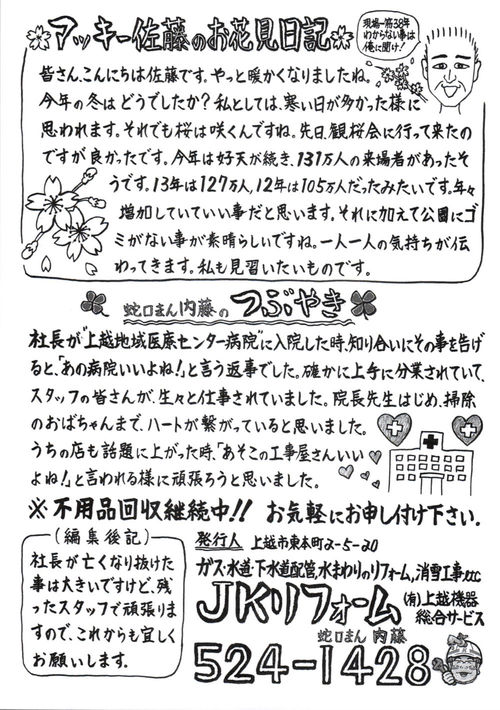 アッキー佐藤のお花見日記
現場一筋38年
わからない事は
俺に聞け!
皆さん、こんにちは佐藤です。やっと暖かくなりましたね。
今年の冬はどうでしたか?私としては、寒い日が多かった様に
思われます。それでも桜は咲くんですね。先日、観桜会に行って来たの
ですが良かったです。今年は好天が続き、131万人の来場者があったそ
うです。13年は127万人、12年は105万人だったみたいです。年々
増加していていい事だと思います。それに加えて公園にゴ
ミがない事が素晴らしいですね。一人一人の気持ちが伝
わってきます。私も見習いたいものです。
蛇口まん内藤のつぶやき
社長が"上越地域医療センター病院"に入院した時、知り合いにその事を告げ
ると、「あの病院いいよね!」と言う返事でした。確かに上手に分業されていて、
スタッフの皆さんが、生々と仕事されていました。院長先生はじめ、掃除
のおばちゃんまで、ハートが繋がっていると思いました。
うちの店も話題に上がった時、「あそこの工事屋さんいい
よね!」と言われる様に頑張ろうと思いました。
※不用品回収継続中!! お気軽にお申し付け下さい。
(編集後記)
社長が亡くなり抜けた
事は大きいですけど、残
ったスタッフで頑張りま
すので、これからも宜しく
お願いします。
発行人 上越市東本町2-5-20
ガス・水道・下水道配管、水まわりのリフォーム、消雪工事etc
JKリフォーム (有)上越機器
総合サービス
蛇口まん 内藤
524-1428